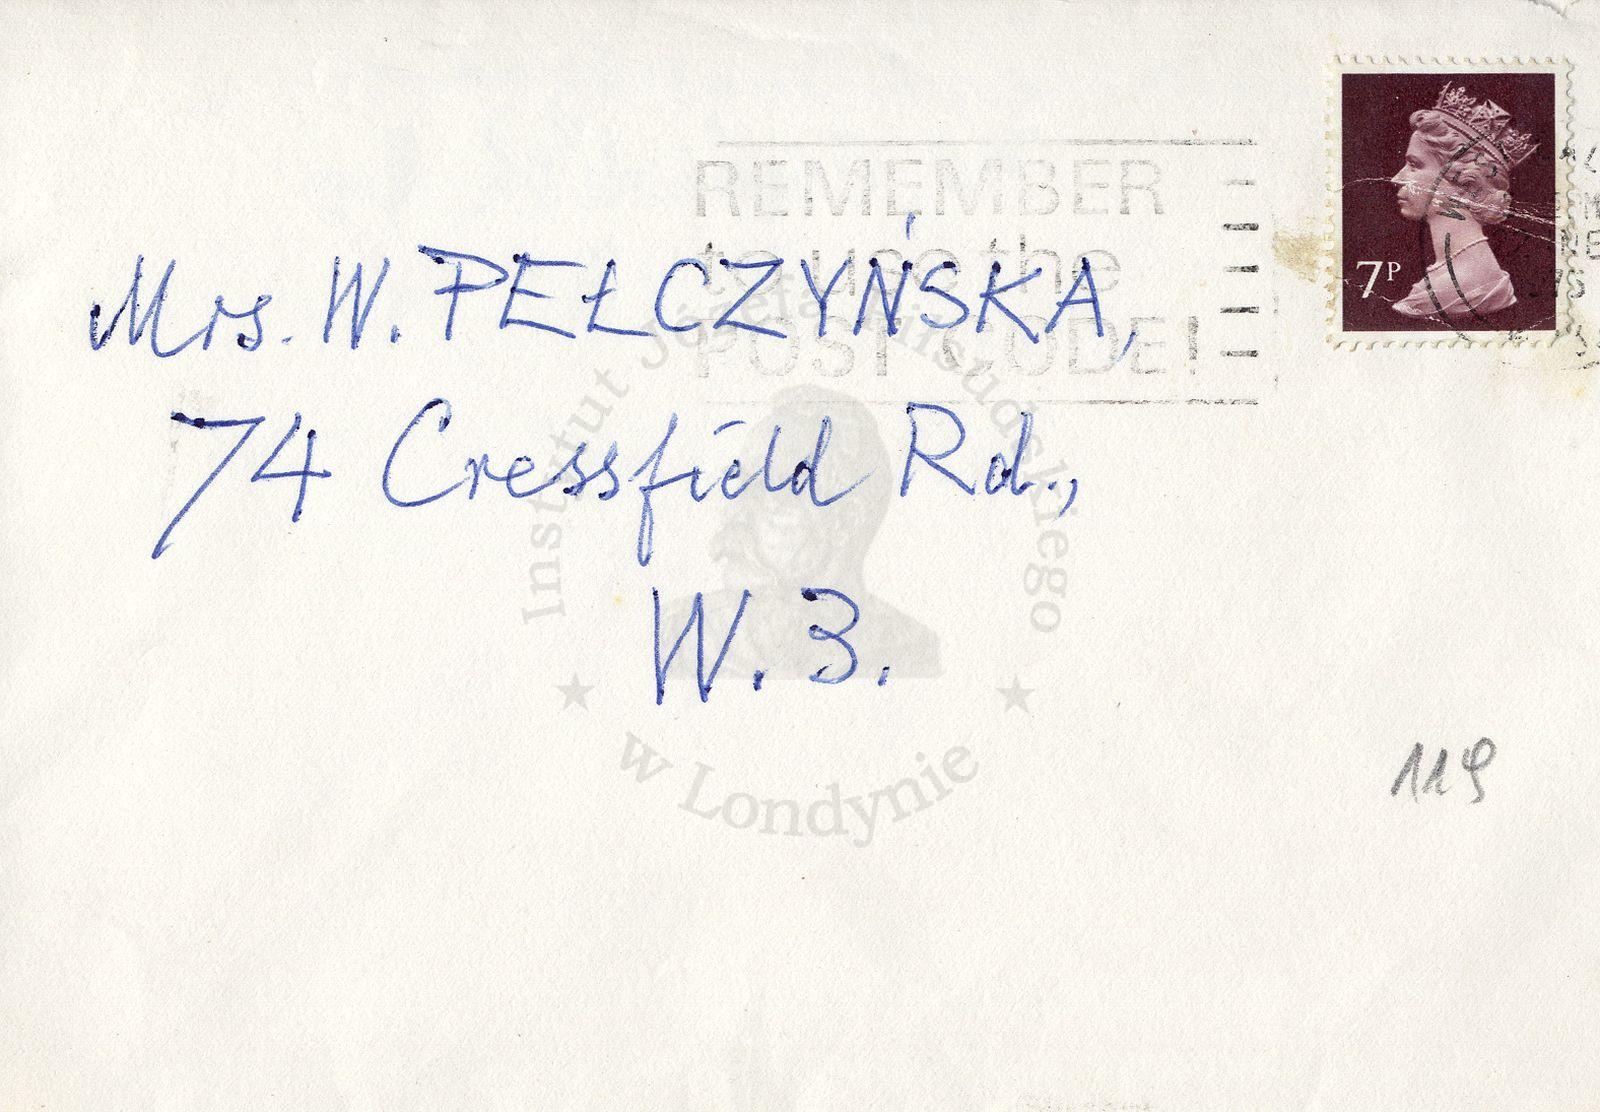 REMEMBER
to use the
POST CODE!
7P
Mrs. W. PEŁCZYŃSKA,
74 Cressfield Rd.,
W. 3.
119
Instytut Józefa Piłsudskiego
w Londynie